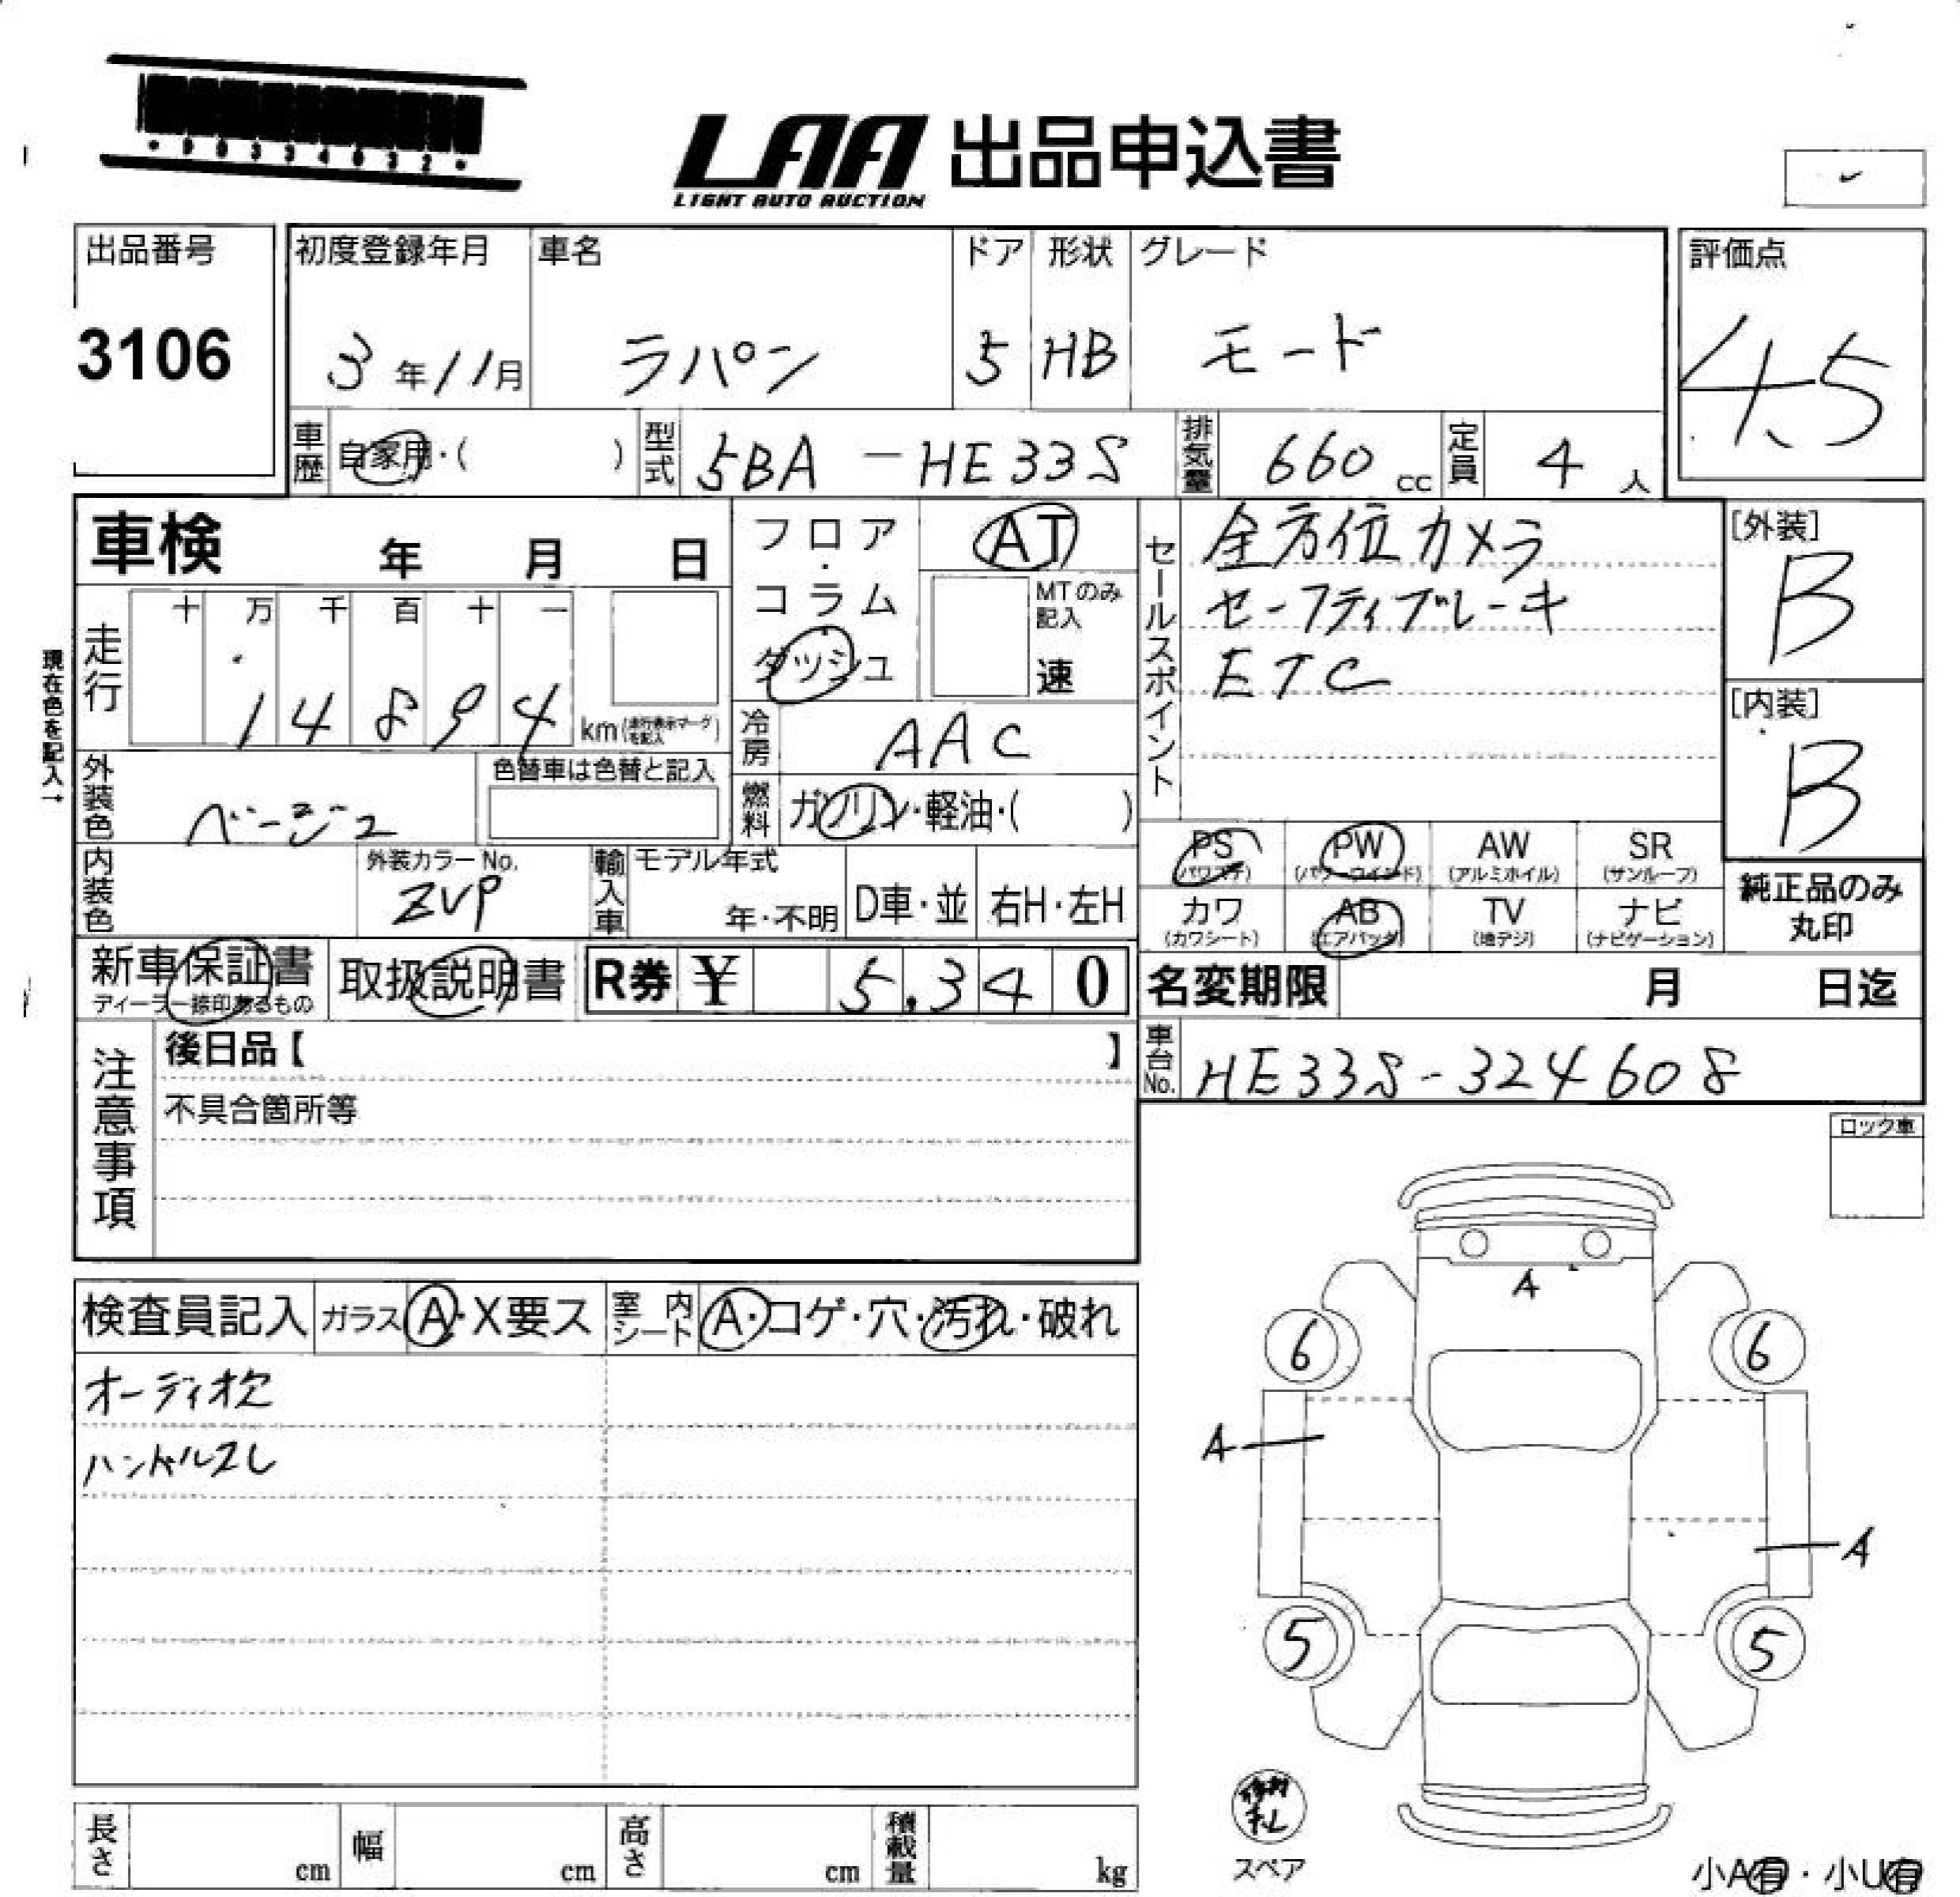 ・90334032・
LAA 出品申込書
LIGHT AUTO AUCTION
出品番号 初度登録年月 車名 ドア 形状 グレード 評価点
3106 3年11月 ラパン 5 HB モード 4.5
車歴 自家用・( ) 型式 5BA-HE33S 排気量 660cc 定員 4人
車検 年 月 日
フロア・コラム・ダッシュ
AT
MTのみ記入
速
セールスポイント
全方位カメラ
セーフティブレーキ
ETC
[外装]
B
[内装]
B
現在色を記入→
走行 十 万 千 百 十 一
14894 km(走行表示マークを記入)
冷房 AAC
外装色 ベージュ
色替車は色替と記入
燃料 ガソリン・軽油・( )
内装色
外装カラーNo.
ZVP
輸入車 モデル年式
年・不明 D車・並 右H・左H
PS (パワステ) PW (パワーウインド) AW (アルミホイル) SR (サンルーフ)
カワ (カワシート) AB (エアバッグ) TV (地デジ) ナビ (ナビゲーション)
純正品のみ
丸印
新車保証書
ディーラー捺印あるもの
取扱説明書 R券 ¥ 5,340
名変期限 月 日迄
車台No. HE33S-324608
注意事項
後日品【 】
不具合箇所等
ロック車
検査員記入 ガラス A・X要ス 室内シート A・コゲ・穴・汚れ・破れ
オーディオ欠
ハンドルスレ
A
6 6
A
A
5 5
スペア
長さ cm 幅 cm 高さ cm 積載量 kg
小A有・小U有